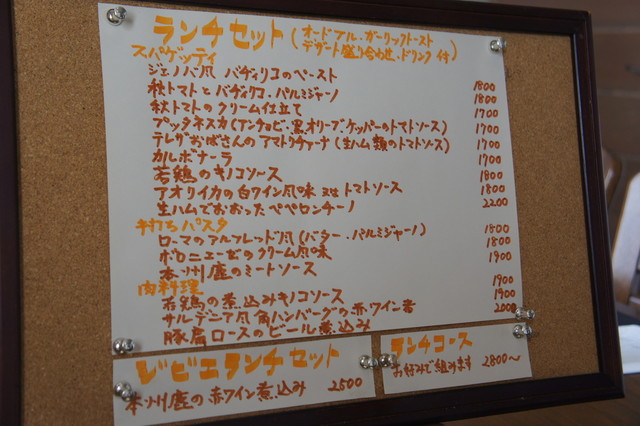 ランチセット(オードブル・ガーリックトースト
デザート盛り合わせ・ドリンク 付)
スパゲッティ
ジェノバ風 バヂィリコのペースト 1800
秋トマトとバヂィリコ・パルミジャーノ 1800
秋トマトのクリーム仕立て 1700
プッタネスカ(アンチョビ・黒オリーブ・ケッパーのトマトソース) 1700
テレザおばさんのアマトリチャーナ(生ハム類のトマトソース) 1700
カルボナーラ 1700
若鶏のキノコソース 1800
アオリイカの白ワイン風味 又は トマトソース 1800
生ハムでおおったペペロンチーノ 2200
手打ちパスタ
ローマのアルフレッド風(バター・パルミジャーノ) 1800
ボロニェーゼのクリーム風味 1800
本州鹿のミートソース 1900
肉料理
若鶏の煮込みキノコソース 1900
サルデニア風 ハンバーグの赤ワイン煮 1900
豚肩ロースのビール煮込み 2000
ジビエランチセット
本州鹿の赤ワイン煮込み 2500
ランチコース
お好みで組みます 2800〜